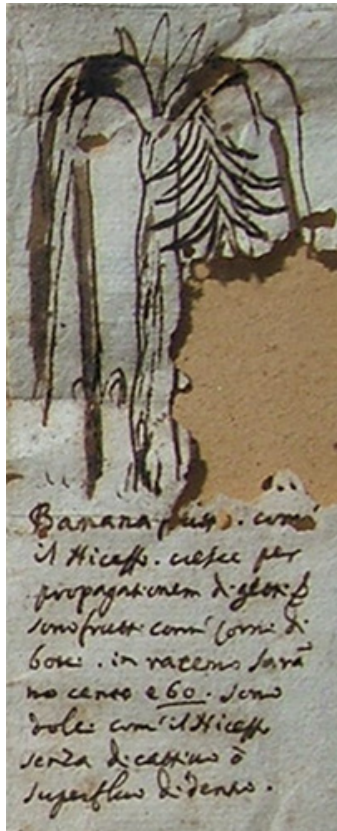 Banana frutto. com'
il Hiceffo. cresce per
propagationem di
sono frutti com' corni di
bove. in racemo sara
no cento e 60. sono
dolci com' il Hiceffo
senza di cattivo ò
superfluo di dentro.